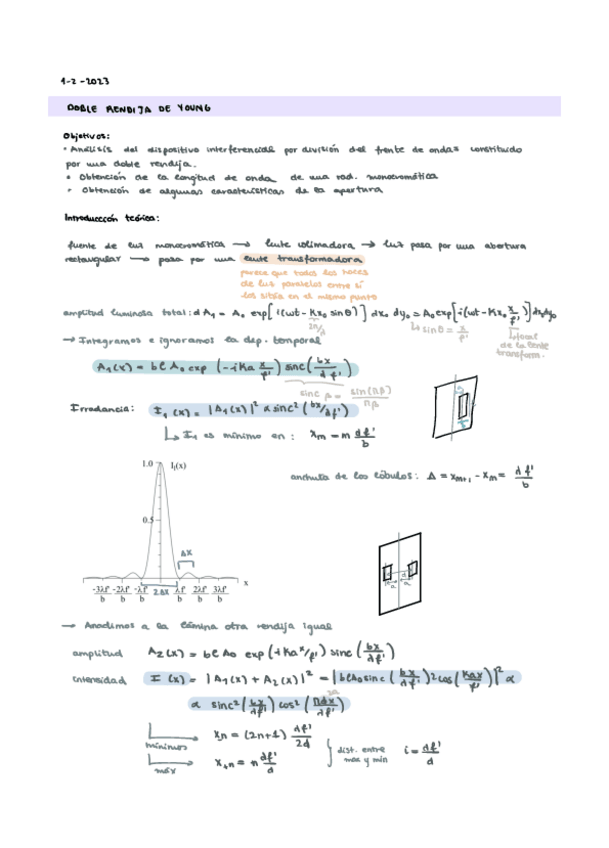 1-2-2023
DOBLE RENDIJA DE YOUNG
Objetivos:
• Análisis del dispositivo interferencial por división del frente de ondas constituido
por una doble rendija.
• Obtención de la longitud de onda de una rad. monocromática
• Obtención de algunas características de la apertura
Introducción teórica:
fuente de luz monocromática → lente colimadora → luz pasa por una abertura
rectangular → pasa por una lente transformadora
parece que todos los haces
de luz paralelos entre sí
los sitúa en el mismo punto
amplitud luminosa total: dA₁ = A₀ exp[i(ωt - Kx₀ sinθ)] dx₀ dy₀ = A₀ exp[i(ωt - Kx₀ x/f')] dx₀dy₀
2π/λ
↳ sinθ = x/f'
↳ focal
de la lente
transform.
→ Integramos e ignoramos la dep. temporal
A₁(x) = bℓA₀ exp(-iKa x/f') sinc(bx/λf')
sinc β = sin(πβ)/πβ
Irradiancia: I₁(x) = |A₁(x)|² α sinc²(bx/λf')
↳ I₁ es mínimo en: xₘ = m λf'/b
anchura de los lóbulos: Δ = xₘ₊₁ - xₘ = λf'/b
1.0 I₁(x)
0.5
Δx
2Δx
x
-3λf'/b -2λf'/b -λf'/b λf'/b 2λf'/b 3λf'/b
→ Anadimos a la lámina otra rendija igual
amplitud A₂(x) = bℓA₀ exp(+iKa x/f') sinc(bx/λf')
intensidad I(x) = |A₁(x) + A₂(x)|² = |bℓA₀ sinc(bx/λf') 2cos(Kax/f')|² α
2a
α sinc²(bx/λf') cos²(πdx/λf')
mínimos xₙ = (2n+1) λf'/2d
máx x₊ₙ = n λf'/d
dist. entre
max y min i = λf'/d